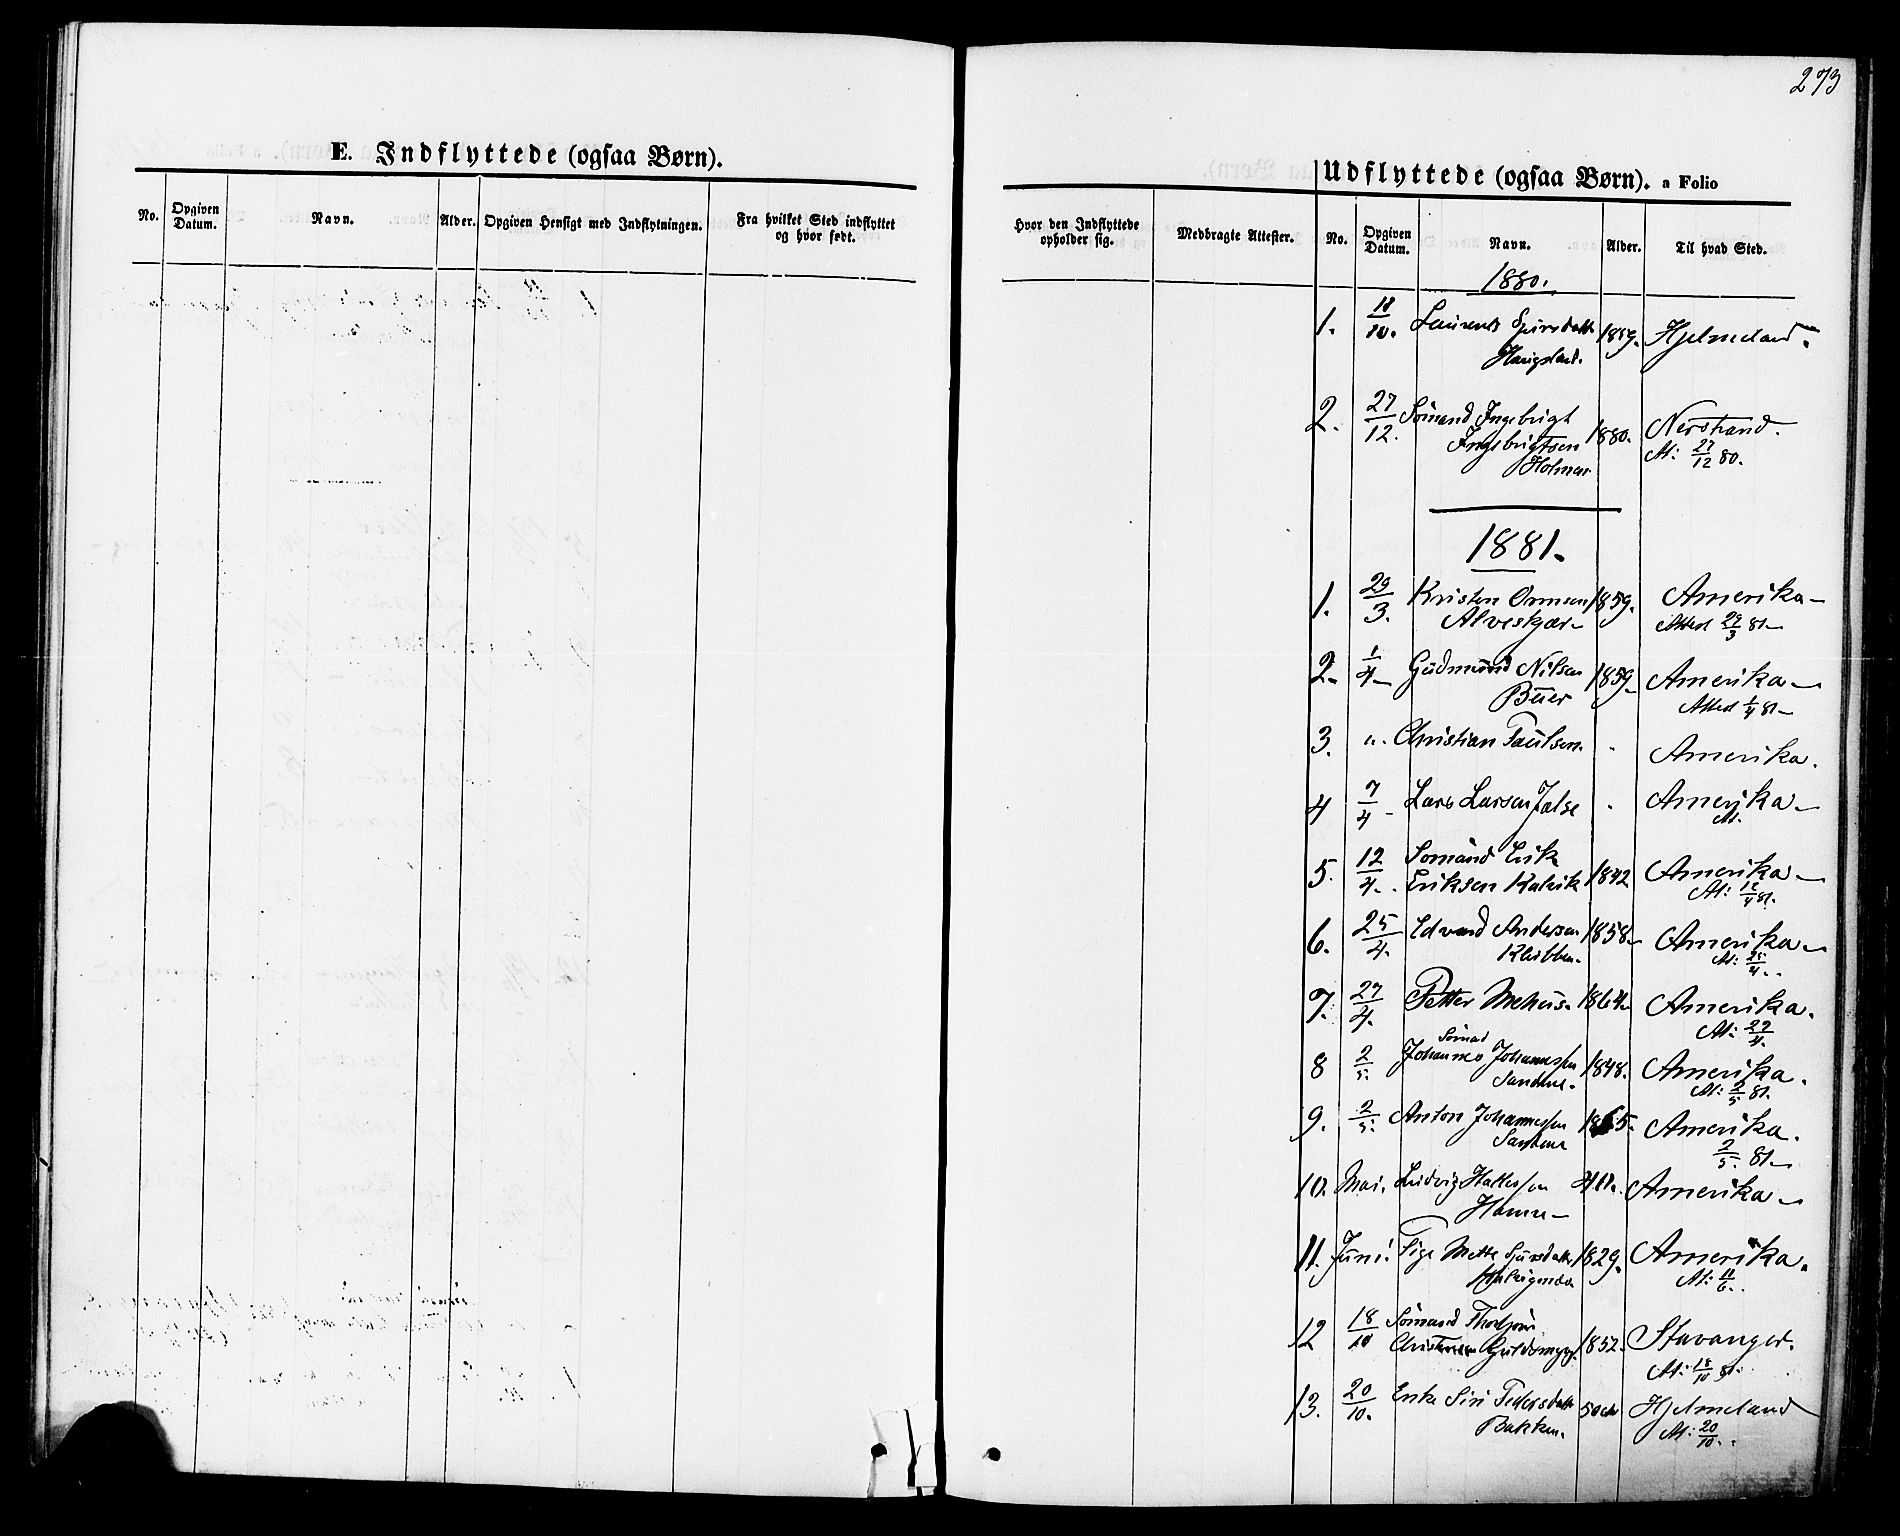 273
E. Indflyttede (ogsaa Børn).
No. Opgiven Datum. Navn. Alder. Opgiven Hensigt med Indflytningen. Fra hvilket Sted indflyttet og hvor født.
Udflyttede (ogsaa Børn). a Folio
Hvor den Indflyttede opholder sig. Medbragte Attester. No. Opgiven Datum. Navn. Alder. Til hvad Sted.
1880.
1. 11/10. 1859. Hjelmeland.
2. 27/12. Sömand Ingebrigt
Ingebrigtsen 1880. Nerstrand.
Holmen At: 27/12 80.
1881.
1. 29/3. Kristen Ormsen 1859. Amerika
Alveskjær Attest 29/3 81
2. 1/4 Gudmund Nilsen 1859 Amerika
Buer Attest 1/4 81
3. ". Christian Paulsen. Amerika.
4 7/4 Lars Larsen Jalse Amerika
At.
5. 12/4. Somand Erik
Eriksen Kalvik 1842 Amerika
At: 12/4 81.
6. 25/4. Edvard Andersen 1858 Amerika
At: 25/4.
7. 27/4. Petter Mehus. 1864 Amerika.
At: 27/4.
8 2/5. Sömad
Johannes Johannessen 1848. Amerika.
At: 2/5 81.
9. 2/5. Anton Johannessen 1865. Amerika.
2/5. 81
10. Mai. Ludvig Amerika
11. Juni. Mette Sjursdatter 1829. Amerika.
At: 11/6.
12 18/10 Sömand
Christensen 1852. Stavanger.
At: 18/10 81.
13. 20/10. Enke Siri Pedersdatter 50 Hjelmeland
Bakken. At: 20/10.